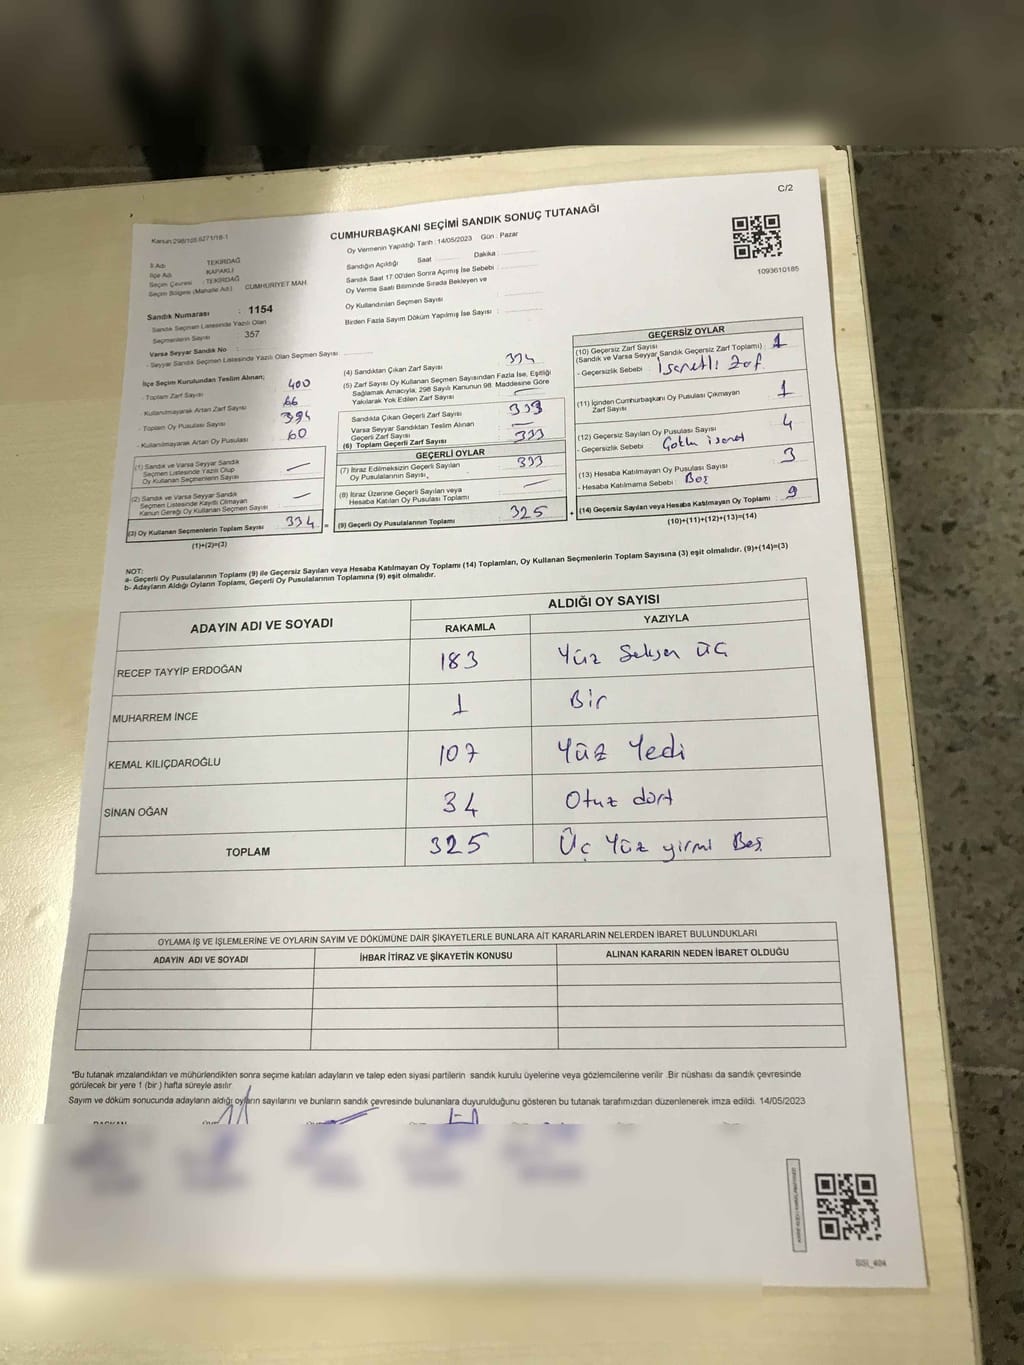 C/2
Kanun:298/105.6271/18-1
CUMHURBAŞKANI SEÇİMİ SANDIK SONUÇ TUTANAĞI
Oy Vermenin Yapıldığı Tarih : 14/05/2023 Gün : Pazar
1093610185
İl Adı : TEKİRDAĞ
İlçe Adı : KAPAKLI
Seçim Çevresi : TEKİRDAĞ
Seçim Bölgesi (Mahalle Adı) : CUMHURİYET MAH.
Sandık Numarası : 1154
Sandık Seçmen Listesinde Yazılı Olan
Seçmenlerin Sayısı : 357
Varsa Seyyar Sandık No :
- Seyyar Sandık Seçmen Listesinde Yazılı Olan Seçmen Sayısı :
Sandığın Açıldığı Saat Dakika :
Sandık Saat 17:00'den Sonra Açımış İse Sebebi :
Oy Verme Saati Bitiminde Sırada Bekleyen ve
Oy Kullandırılan Seçmen Sayısı :
Birden Fazla Sayım Döküm Yapılmış İse Sayısı :
İlçe Seçim Kurulundan Teslim Alınan;
- Toplam Zarf Sayısı : 400
- Kullanılmayarak Artan Zarf Sayısı : 66
- Toplam Oy Pusulası Sayısı : 394
- Kullanılmayarak Artan Oy Pusulası : 60
(1) Sandık ve Varsa Seyyar Sandık
Seçmen Listesinde Yazılı Olup
Oy Kullanan Seçmenlerin Sayısı —
(2) Sandık ve Varsa Seyyar Sandık
Seçmen Listesinde Kayıtlı Olmayan
Kanun Gereği Oy Kullanan Seçmen Sayısı —
(3) Oy Kullanan Seçmenlerin Toplam Sayısı 334
(1)+(2)=(3)
(4) Sandıktan Çıkan Zarf Sayısı : 334
(5) Zarf Sayısı Oy Kullanan Seçmen Sayısından Fazla İse, Eşitliği
Sağlamak Amacıyla; 298 Sayılı Kanunun 98. Maddesine Göre
Yakılarak Yok Edilen Zarf Sayısı : —
Sandıkta Çıkan Geçerli Zarf Sayısı : 333
Varsa Seyyar Sandıktan Teslim Alınan
Geçerli Zarf Sayısı : —
(6) Toplam Geçerli Zarf Sayısı : 333
GEÇERLİ OYLAR
(7) İtiraz Edilmeksizin Geçerli Sayılan
Oy Pusulasının Sayısı : 333
(8) İtiraz Üzerine Geçerli Sayılan veya
Hesaba Katılan Oy Pusulası Toplamı : —
= (9) Geçerli Oy Pusulalarının Toplamı : 325 +
GEÇERSİZ OYLAR
(10) Geçersiz Zarf Sayısı
(Sandık ve Varsa Seyyar Sandık Geçersiz Zarf Toplamı) : 1
- Geçersizlik Sebebi : İşaretli Zarf
(11) İçinden Cumhurbaşkanı Oy Pusulası Çıkmayan
Zarf Sayısı : 1
(12) Geçersiz Sayılan Oy Pusulası Sayısı : 4
- Geçersizlik Sebebi :
(13) Hesaba Katılmayan Oy Pusulası Sayısı : 3
- Hesaba Katılmama Sebebi : Boş
(14) Geçersiz Sayılan veya Hesaba Katılmayan Oy Toplamı : 9
(10)+(11)+(12)+(13)=(14)
NOT:
a- Geçerli Oy Pusulalarının Toplamı (9) ile Geçersiz Sayılan veya Hesaba Katılmayan Oy Toplamı (14) Toplamları, Oy Kullanan Seçmenlerin Toplam Sayısına (3) eşit olmalıdır. (9)+(14)=(3)
b- Adayların Aldığı Oyların Toplamı, Geçerli Oy Pusulalarının Toplamına (9) eşit olmalıdır.
ADAYIN ADI VE SOYADI
ALDIĞI OY SAYISI
RAKAMLA YAZIYLA
RECEP TAYYİP ERDOĞAN 183 Yüz Seksen üç
MUHARREM İNCE 1 Bir
KEMAL KILIÇDAROĞLU 107 Yüz Yedi
SİNAN OĞAN 34 Otuz dört
TOPLAM 325 Üç Yüz yirmi Beş
OYLAMA İŞ VE İŞLEMLERİNE VE OYLARIN SAYIM VE DÖKÜMÜNE DAİR ŞİKAYETLERLE BUNLARA AİT KARARLARIN NELERDEN İBARET BULUNDUKLARI
ADAYIN ADI VE SOYADI İHBAR İTİRAZ VE ŞİKAYETİN KONUSU ALINAN KARARIN NEDEN İBARET OLDUĞU
*Bu tutanak imzalandıktan ve mühürlendikten sonra seçime katılan adayların ve talep eden siyasi partilerin sandık kurulu üyelerine veya gözlemcilerine verilir .Bir nüshası da sandık çevresinde
görülecek bir yere 1 (bir ) hafta süreyle asılır.
Sayım ve döküm sonucunda adayların aldığı oyların sayılarını ve bunların sandık çevresinde bulunanlara duyurulduğunu gösteren bu tutanak tarafımızdan düzenlenerek imza edildi. 14/05/2023